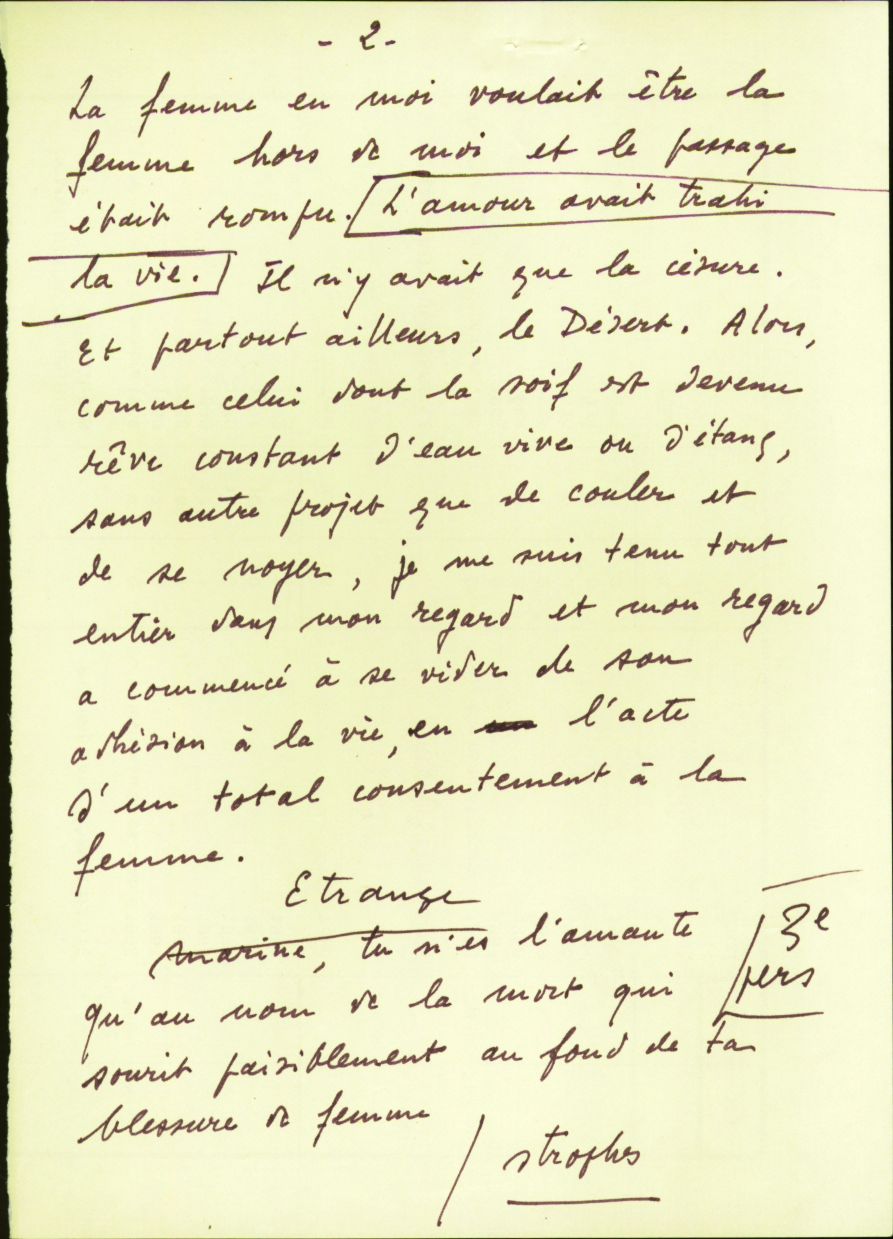 - 2 -
La femme en moi voulait être la
femme hors de moi et le passage
était rompu. L'amour avait trahi
la vie. Il n'y avait que la césure.
Et partout ailleurs, le Désert. Alors,
comme celui dont la soif est devenu
rêve constant d'eau vive ou d'étang,
sans autre projet que de couler et
de se noyer, je me suis tenu tout
entier dans mon regard et mon regard
a commencé à se vider de son
adhésion à la vie, en l'acte
d'un total consentement à la
femme.
Etrange
Marine, tu n'es l'amante
qu'au nom de la mort qui
sourit paisiblement au fond de ta
blessure de femme
3e
pers
strophes